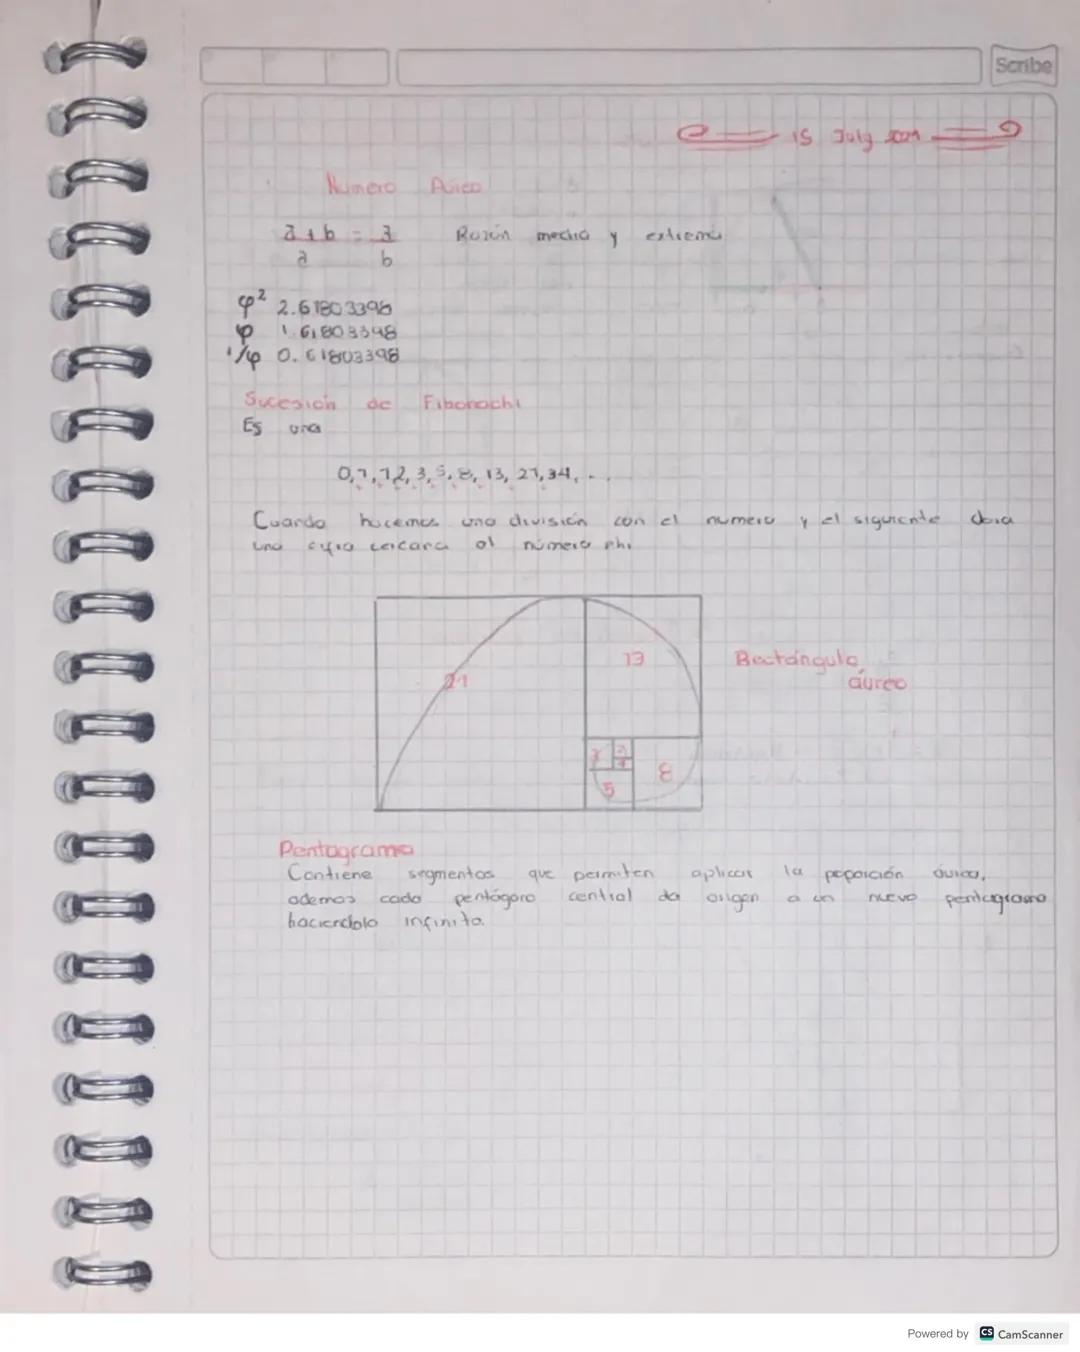 Scribe
15 July
Numero Aúreo
a+b = a Razón media y extrema
a b
φ² 2.61803398
φ 1.61803398
1/φ 0.61803398
Sucesión de Fibonachi
Es una
0,1,1,2,3,5,8,13,21,34,...
Cuando hacemos una división con el numero y el siguiente dara
una cifra cercana al número phi
13
Rectángulo
21
áureo
3 2
1
8
5
Pentagrama
Contiene segmentos que permiten aplicar la poporción áurea,
ademas cada pentágono central da origen a un nuevo pentagrama
haciendolo infinito.
Powered by CS CamScanner